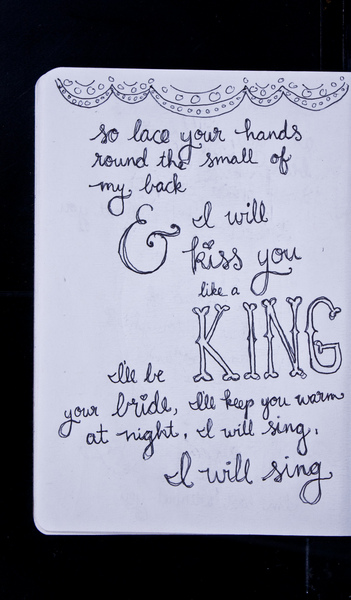 so lace your hands
round the small of
my back
& I will
kiss you
like a
KING
I'll be
your bride, I'll keep you warm
at night, I will sing,
I will sing